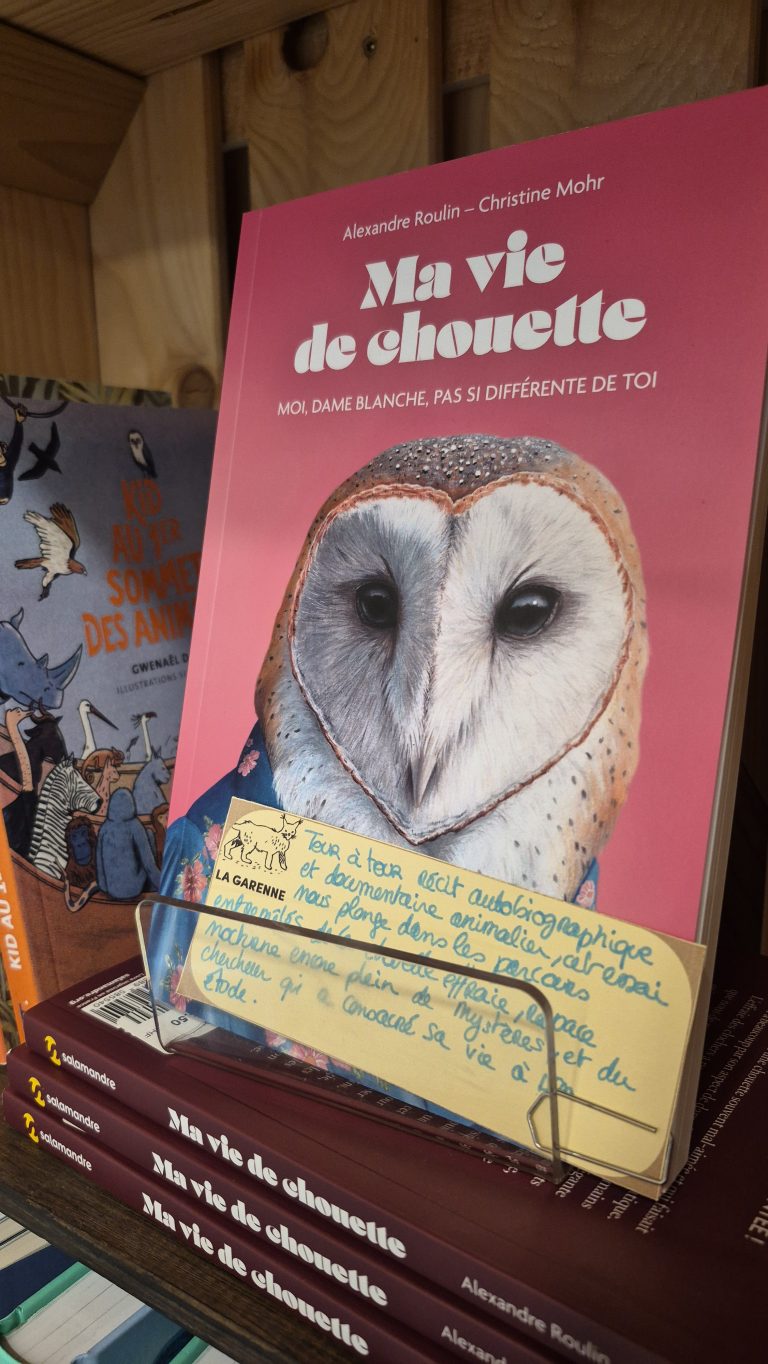 Alexandre Roulin – Christine Mohr
Ma vie
de chouette
MOI, DAME BLANCHE, PAS SI DIFFÉRENTE DE TOI
KID
AU 1ER
SOMMET
DES ANIM
GWENAËL D
ILLUSTRATIONS
KID AU 1
LA GARENNE
Tour à tour récit autobiographique
et documentaire animalier, cet essai
nous plonge dans les parcours
entremêlés de la chouette effraie, rapace
nocturne encore plein de mystères, et du
chercheur qui a consacré sa vie à son
étude.
salamandre
Ma vie de chouette
Alexandre Roulin
salamandre
Ma vie de chouette
Alexandre
salamandre
Ma vie de chouette